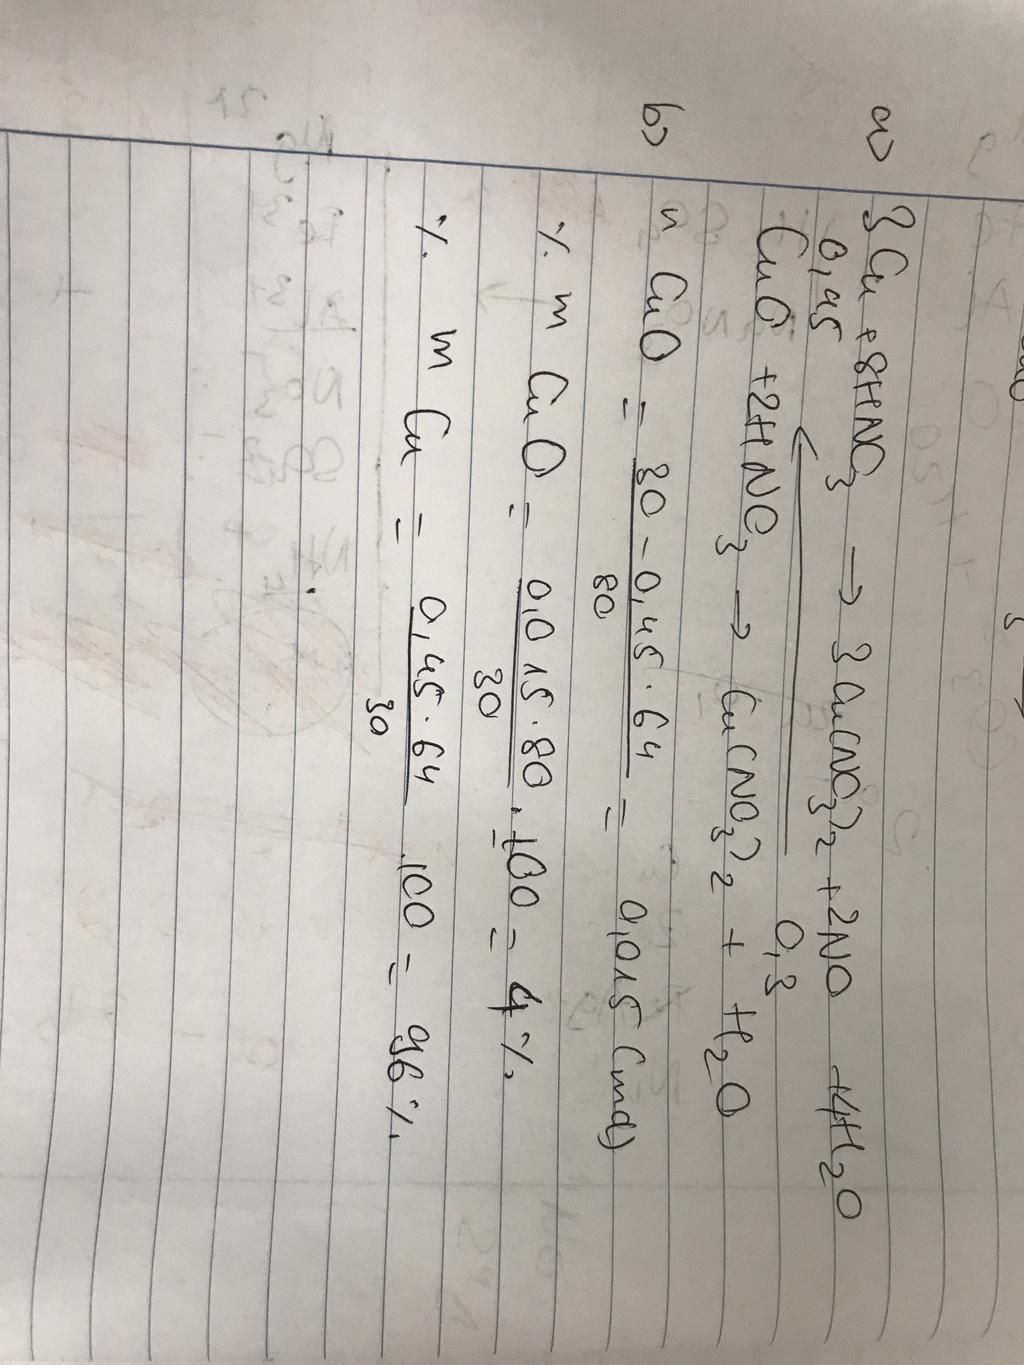 a) 3Cu + 8HNO3 → 3Cu(NO3)2 + 2NO + 4H2O
0,45 ← 0,3
CuO + 2HNO3 → Cu(NO3)2 + H2O
b) n CuO = 30 - 0,45 . 64 / 80 = 0,015 (mol)
% m CuO = 0,015 . 80 / 30 . 100 = 4 %.
% m Cu = 0,45 . 64 / 30 . 100 = 96 %.